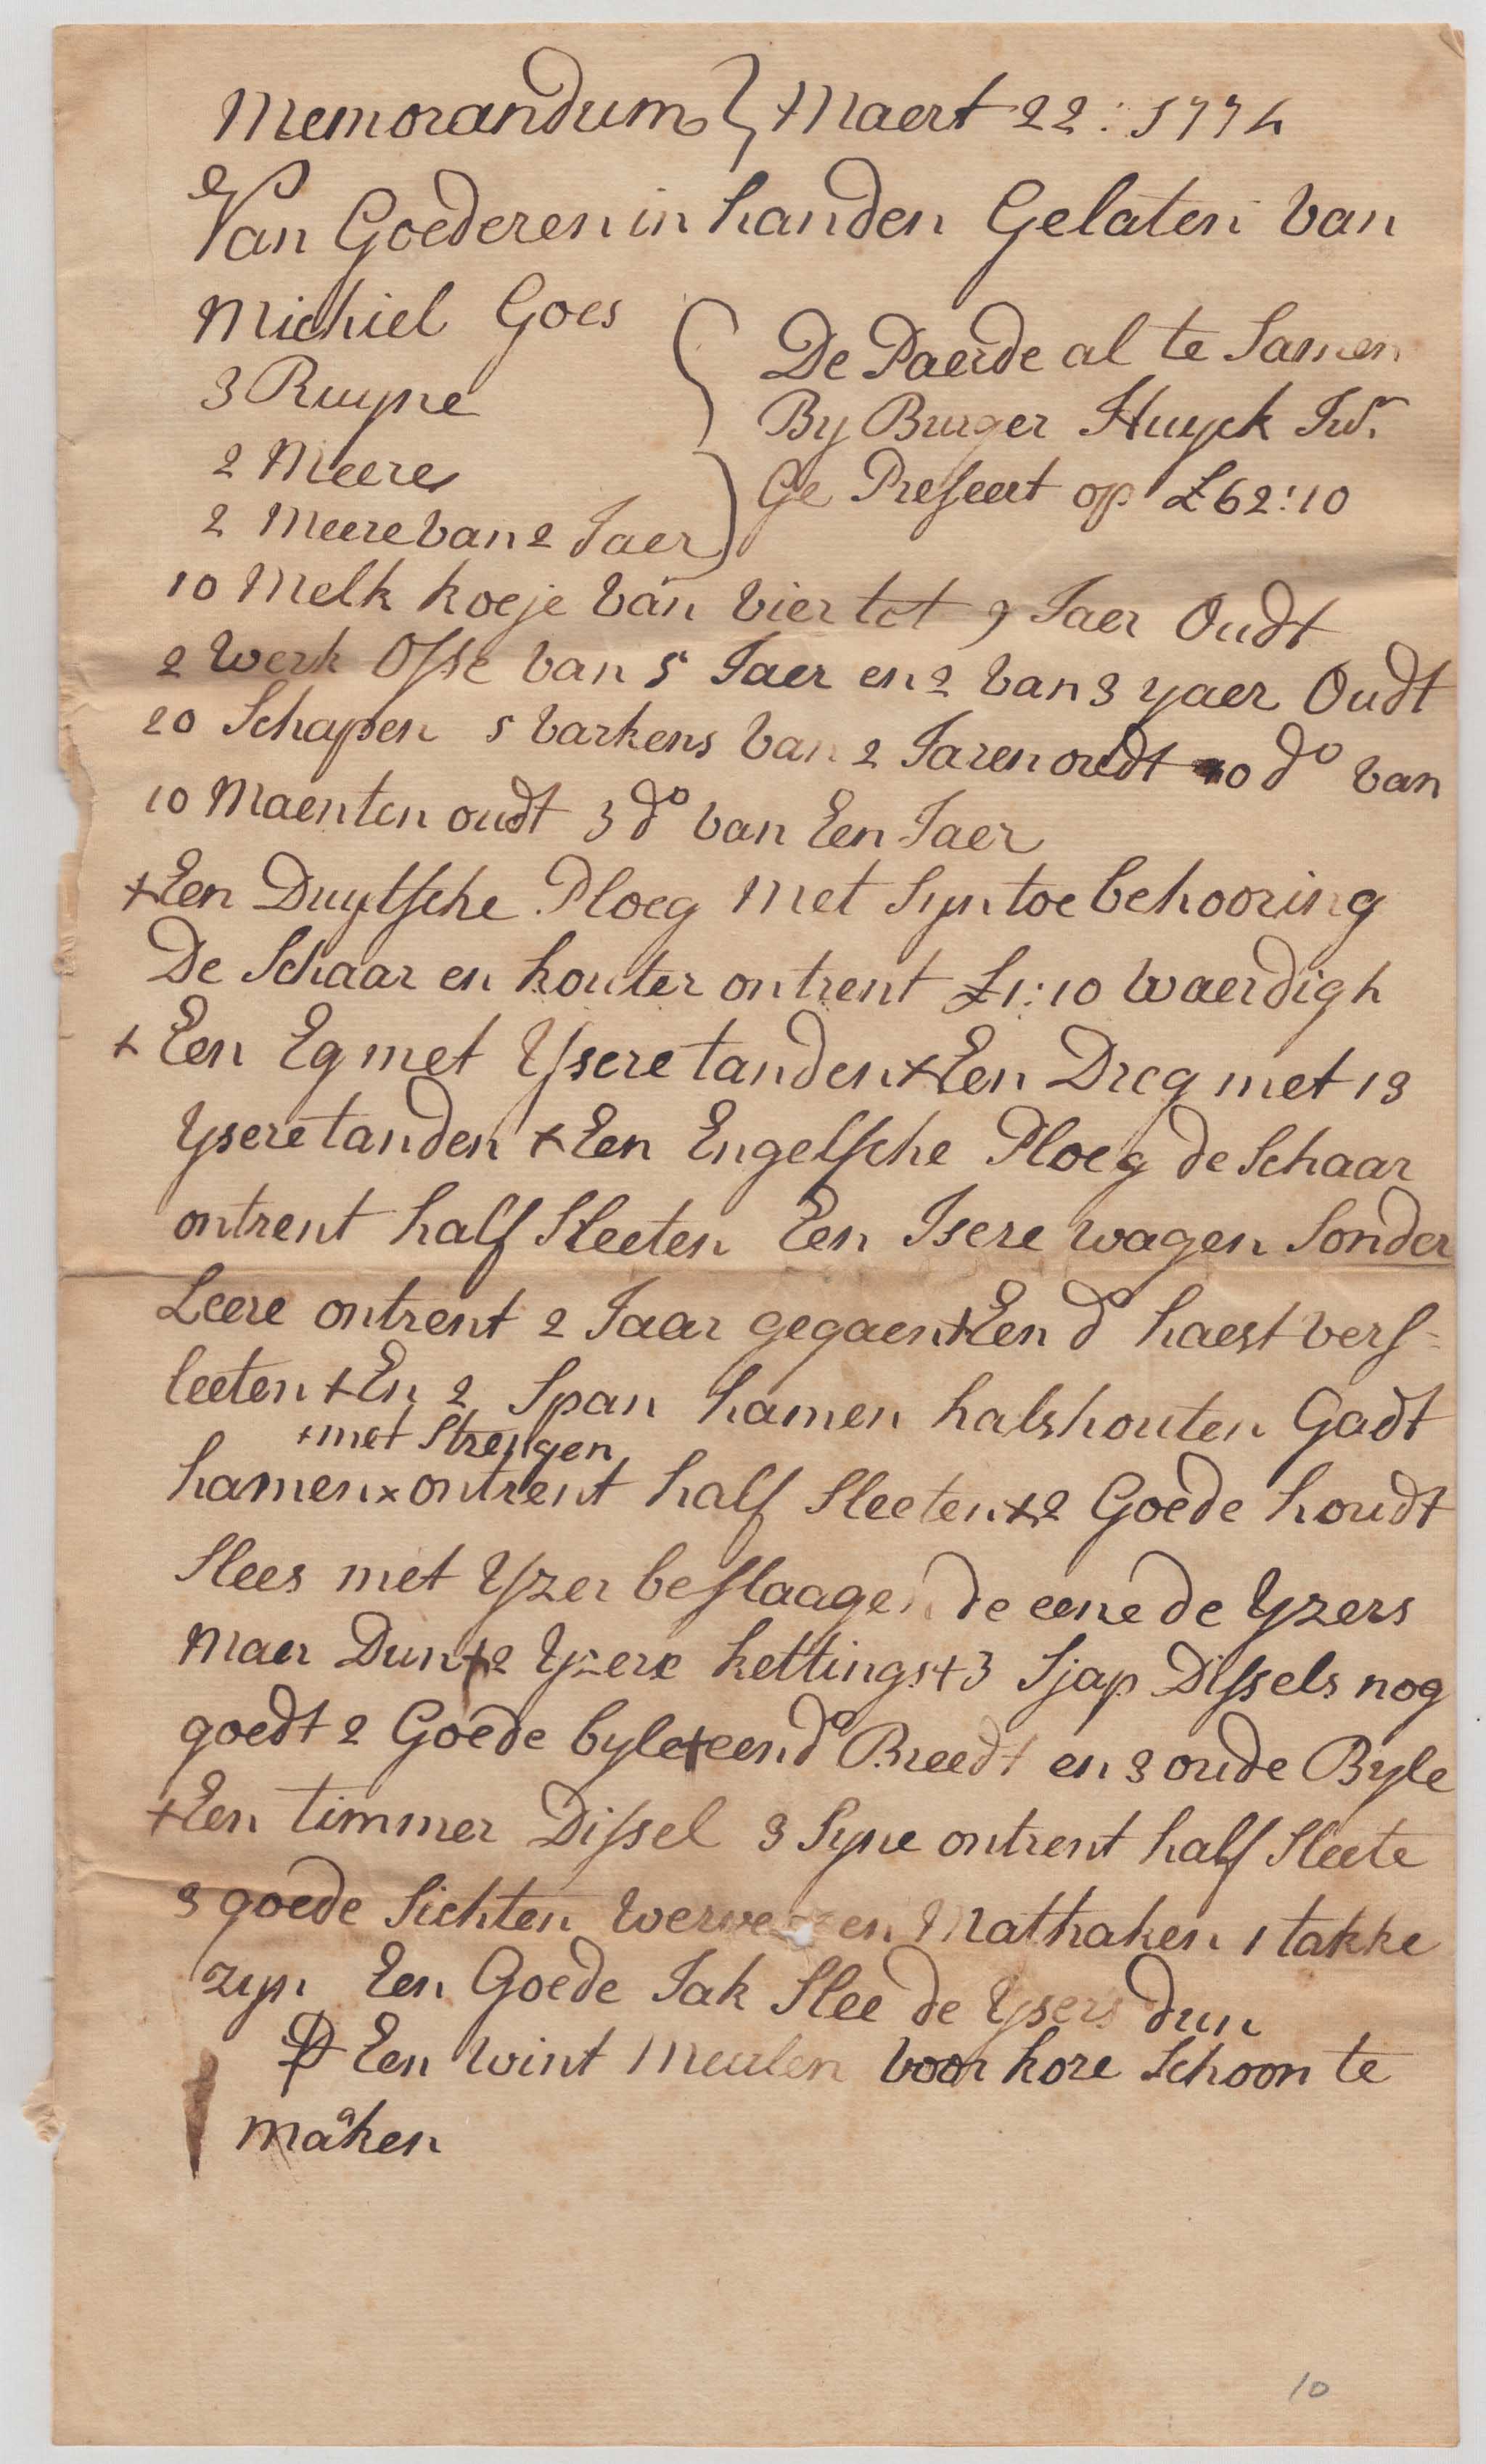 Memorandum } Maert 22 : 1774
Van Goederen in handen Gelaten van
Michiel Goes
3 Ruyne
2 Meere
2 Meere van 2 Jaer
De Paerde al te Samen
By Burger Huyck Jur.
Ge Preseert op £62:10
10 Melk koeje van vier tot 9 Jaer Oudt
2 werk Osse van 5 Jaer en 2 van 3 yaer Oudt
20 Schapen 5 varkens van 2 Jaren oudt 10 do van
10 Maenten oudt 3 do van Een Jaer
+Een Duytsche Ploeg Met Syn toe behooring
De Schaar en kouter ontrent £1:10 waerdigh
+ Een Eg met Ysere tanden + Een Dreg met 13
Ysere tanden + Een Engelsche Ploeg de Schaar
ontrent half Sleeten Een Isere wagen Sonder
Leere ontrent 2 Jaar gegaen + Een do haest vers=
leeten + En 2 Span hamen halshouten Gadt
+met Strengen
hamen x ontrent half Sleeten + 2 Goede houdt
Slees met Yzer beslaagen de eene de Yzers
Maer Dun + 2 Yzere kettings + 3 Sjap Dissels nog
goedt 2 Goede byle + een do Breedt en 3 oude Byle
+Een timmer Dissel 3 Syne ontrent half Sleete
3 goede Sichten en Mathaken 1 takke
zyn Een Goede Jak Slee de Ysers dun
Een wint Meulen voor kore Schoon te
maken
10